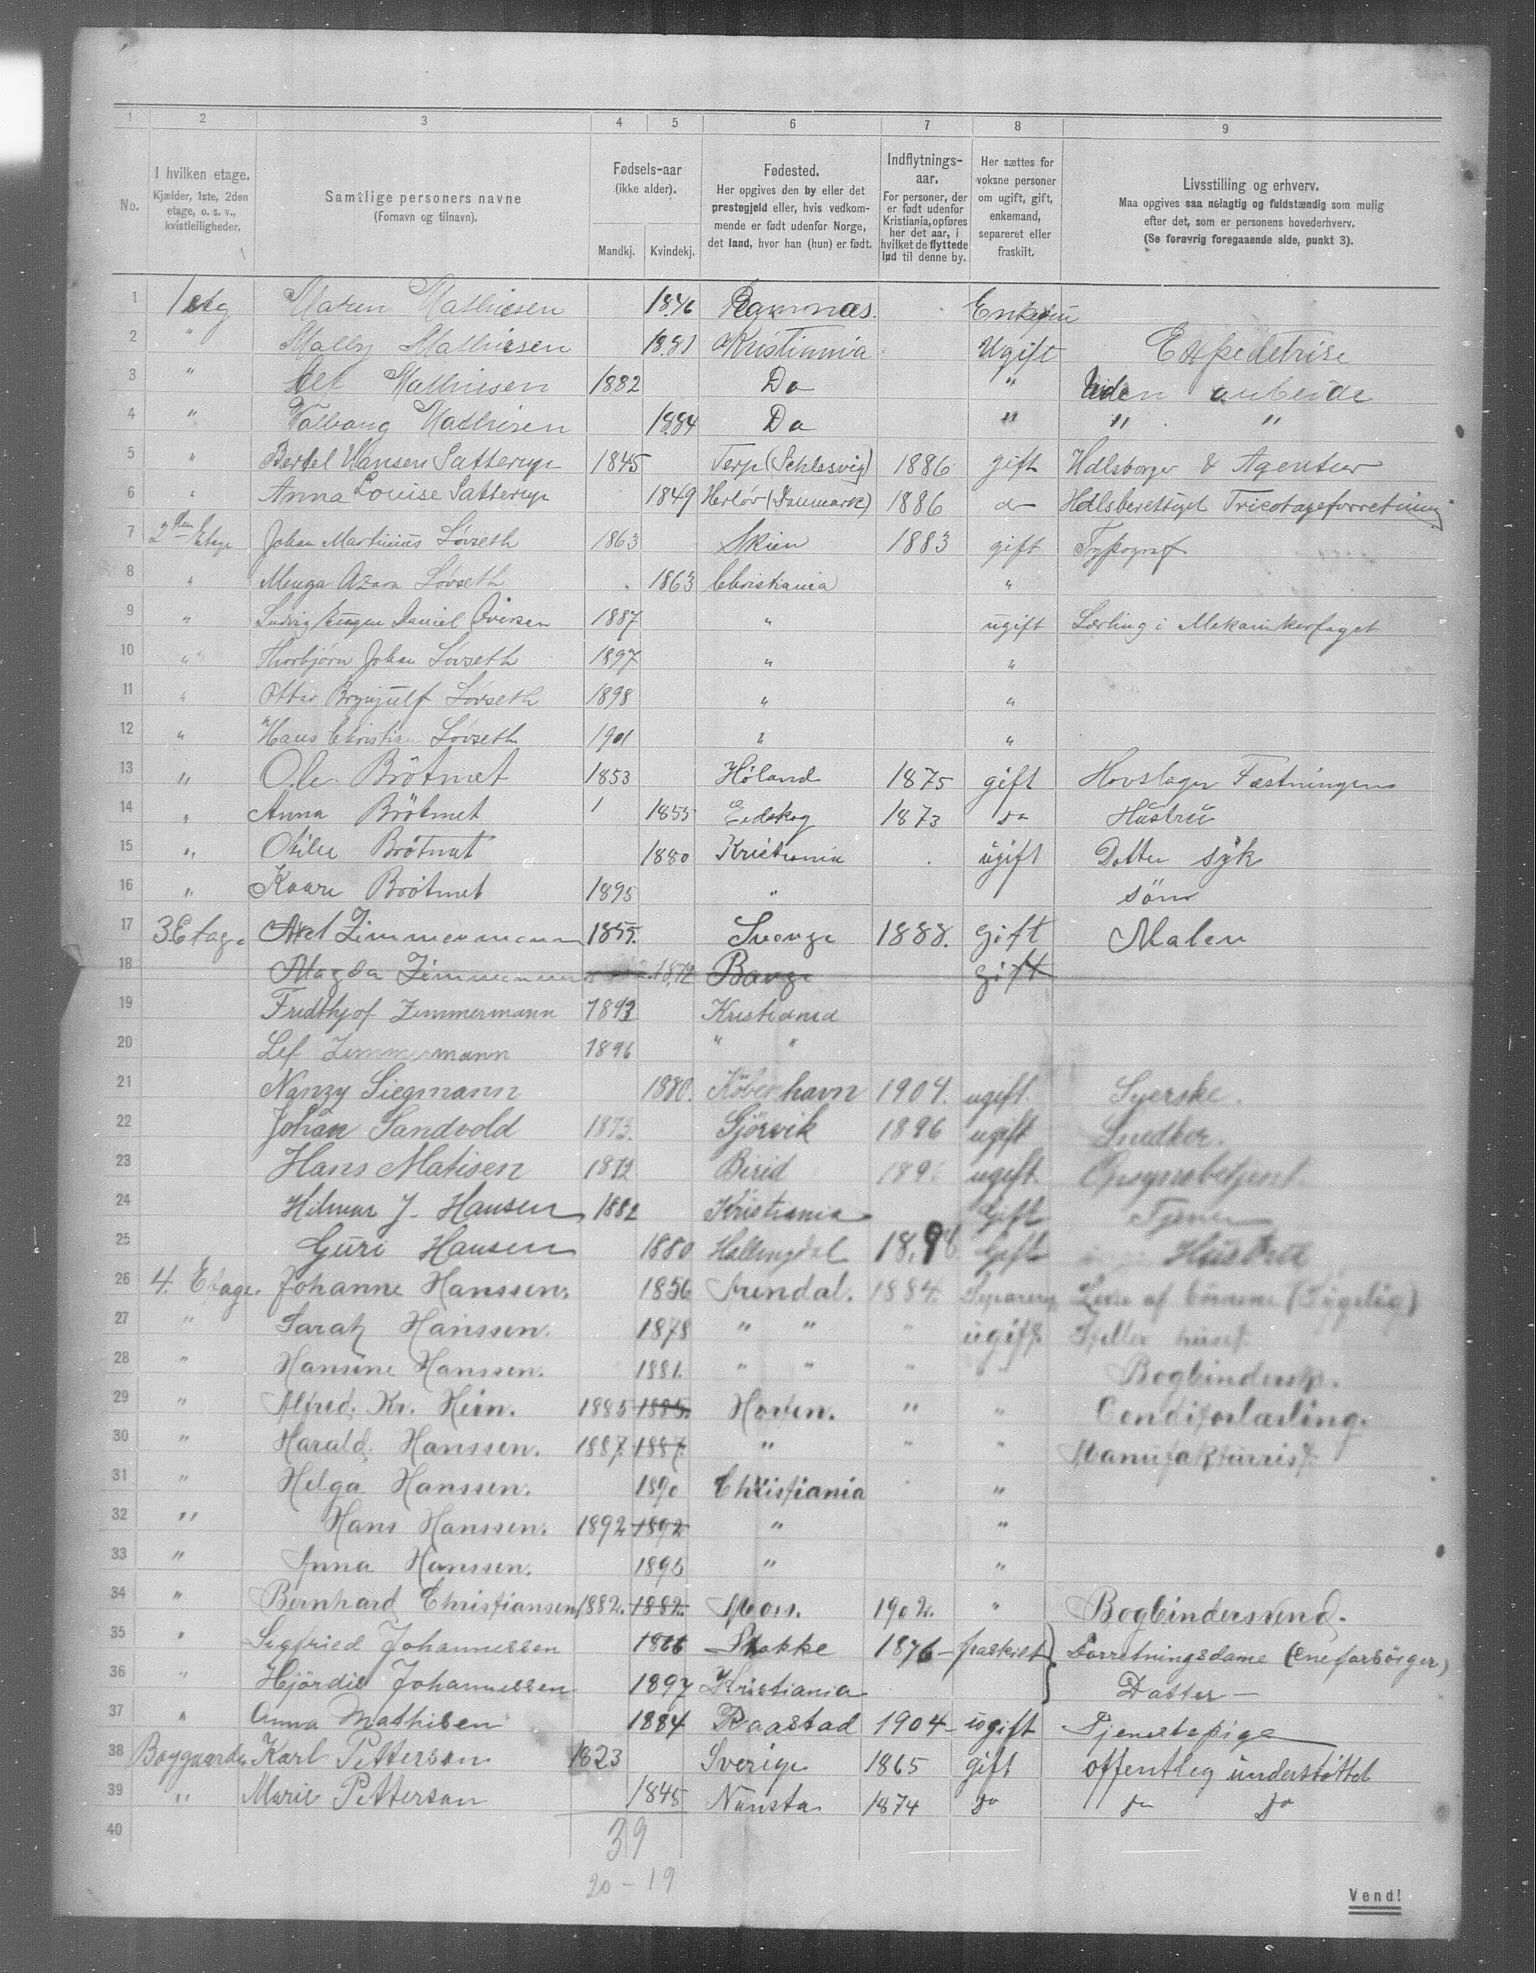 1 2 3 4 5 6 7 8 9
No.
I hvilken etage.
Kjælder, 1ste, 2den
etage, o. s. v.,
kvistleiligheder.
Samtlige personers navne
(Fornavn og tilnavn).
Fødsels-aar
(ikke alder).
Mandkj. Kvindekj.
Fødested.
Her opgives den by eller det
prestegjeld eller, hvis vedkom-
mende er født udenfor Norge,
det land, hvor han (hun) er født.
Indflytnings-
aar.
For personer, der
er født udenfor
Kristiania, opføres
her det aar, i
hvilket de flyttede
ind til denne by.
Her sættes for
voksne personer
om ugift, gift,
enkemand,
separeret eller
fraskilt.
Livsstilling og erhverv.
Maa opgives saa nøiagtig og fuldstændig som mulig
efter det, som er personens hovederhverv.
(Se forøvrig foregaaende side, punkt 3).
1 1 etg Maren Mathiesen 1846 Ramnæs.
2 " Mathiesen 1881 Kristiania Ugift Expeditrise
3 " Mathiesen 1882 Do " Uden arbeide
4 " Valborg Mathisen 1884 Do " " "
5 " Bertel Hansen Satterup 1845 Terp (Schlesvig) 1886 gift Hdlsborger & Agentur
6 " Anna Louise Satterup 1849 Herløv (Danmark) 1886 do Hdlsberettiget Tricotageforretning
7 2den Etage Johan Martinius Løvseth 1863 Skien 1883 gift Typograf
8 " Løvseth 1863 Christiania "
9 " Ludvig Eugen Daniel Iversen 1887 " ugift Lærling i Mekanikerfaget
10 " Thorbjørn Johan Løvseth 1897 " "
11 " Otter Brynjulf Løvseth 1898 " "
12 " Hans Christian Løvseth 1901 " "
13 " Ole Brötmet 1853 Höland 1875 gift Hovslager Fæstningen
14 " Anna Brötmet 1855 Eidskog 1873 do Hustru
15 " Brötmet 1880 Kristiania ugift Datter syk
16 " Kaare Brötmet 1895 " sön
17 3 Etage Axel Zimmermann 1855. Sverige 1888. Gift Maler
18 Magda Zimmermann 1872 Borge gift
19 Fridthjof Zimmermann 1893 Kristiania
20 Leif Zimmermann 1896 " "
21 Nanzy Siegmann 1880. Köbenhavn 1904. ugift. Syerske.
22 Johan Sandvold 1873. Gjörvik 1896 ugift Snedker.
23 Hans Matisen 1872 Birid ugift
24 Hilmar J. Hansen 1882 Kristiania Gift Tjener
25 Guri Hansen 1880 Hallingdal 1898 Gift Hustru
26 4. Etage. Johanne Hanssen. 1856 Arendal. 1884. Separeret Leve af börnene (Sygelig)
27 " Sarah Hanssen. 1878 " " " ugift. Steller huset.
28 " Hansine Hanssen. 1881. " " " Bogbindersk.
29 " Alfred Kr. Hein. 1885 1885. Horten. " " Conditorlærling.
30 " Harald Hanssen. 1887. 1887. " " " Manufakturrist.
31 " Helga Hanssen. 1890 Christiania "
32 " Hans Hanssen. 1892 1892 " "
33 " Anna Hanssen. 1895 " "
34 " Bernhard Christiansen 1882. 1882. Moss. 1902. " Bogbindersvend.
35 " Sigfried Johannessen 1866 Stokke 1876 fraskilt Forretningsdame (eneforsörger)
36 " Hjördis Johannessen 1897 Kristiania Datter
37 " Anna Mathisen 1884 Raastad 1904 ugift Tjenestepige
38 Baggaarden Karl Petterson 1823 Sverige 1865 gift offentleg understöttet
39 " Marie Petterson 1845 1874 do do do
40
39
20 - 19
Vend!